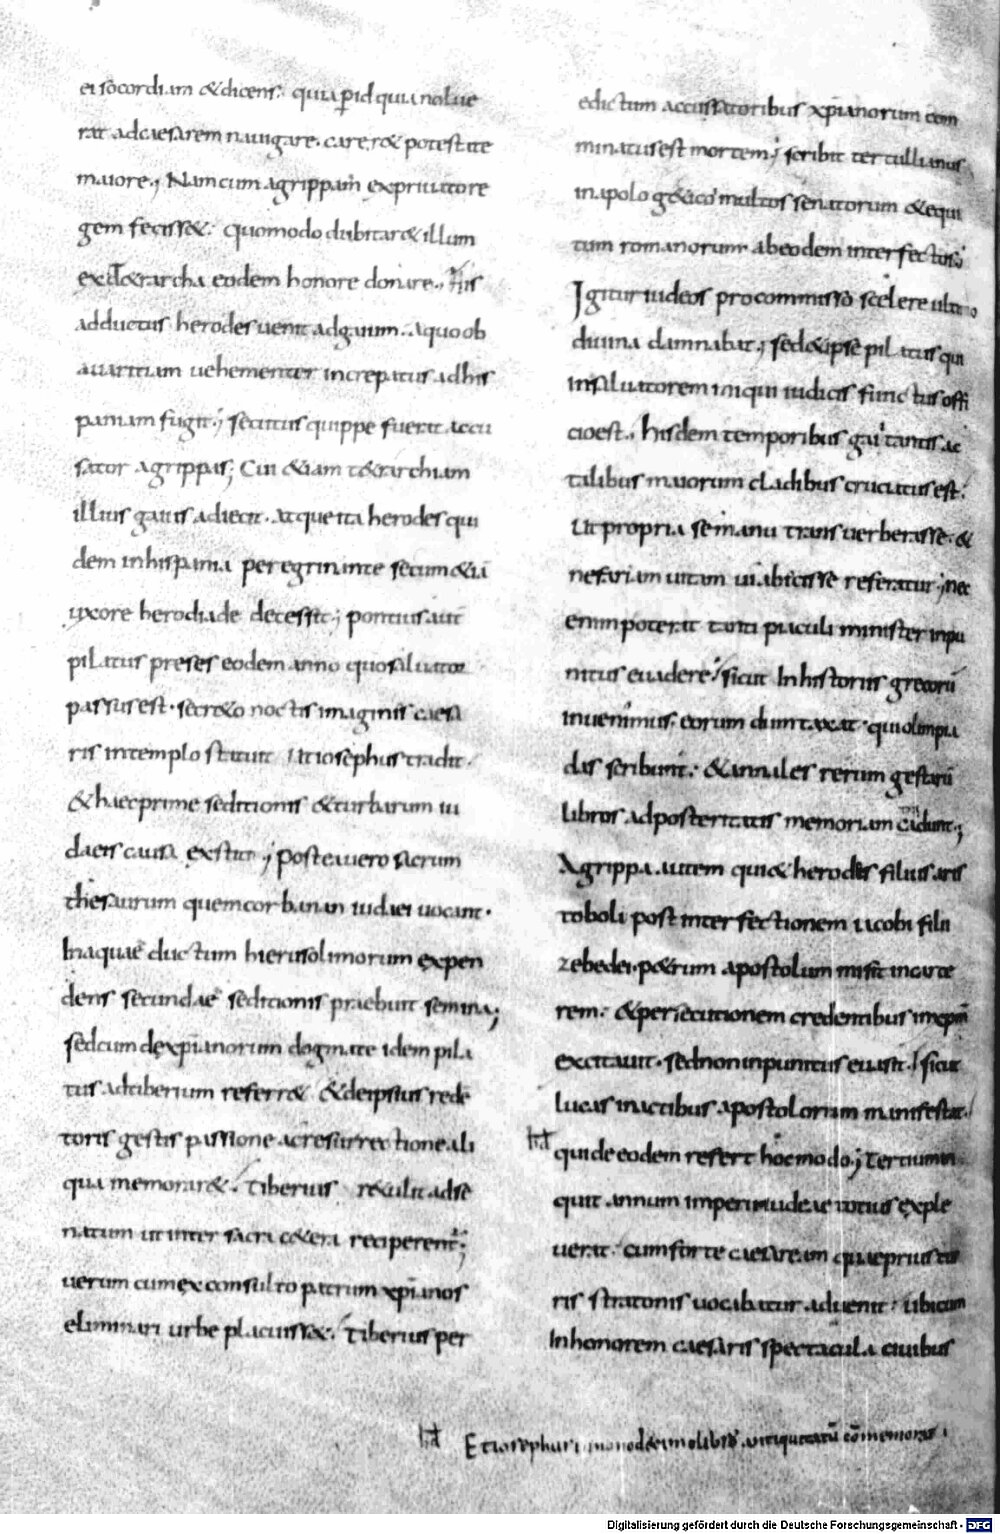 ei socordiam & dicens: quia pid quia nolue
rat ad caesarem nauigare. carer& potestate
maiore; Nam cum agrippam ex priuato re
gem feciss&. quomodo dubitar& illum
ex t&rarcha eodem honore donare.
adductus herodes uenit ad gaium. A quo ob
auaritiam uehementer increpatus ad his
paniam fugit; secutus quippe fuerat accu
sator agrippas; Cui &iam t&rarchiam
illius gaius adiecit. atque ita herodes qui
dem in hispania peregrinante secum &iā
uxore herodiade decessit; pontius aut
pilatus preses eodem anno quo saluator
passus est. secr&o noctis imaginis caesa
ris in templo statuit Ut iosephus tradit.
& haec prime seditionis & turbarum iu
daeis causa exstitit; postea uero sacrum
thesaurum quem corbanan iudaei uocant.
In aquae ductum hierusolimorum expen
dens secundae seditionis praebuit semina;
sed cum de xp̄ianorum dogmate idem pila
tus ad tiberium referr& & de ipsius rede
toris gestis passione ac resurrectione ali
qua memorar&. Tiberius r&ulit ad se
natum ut inter sacra c&era reciperent;
uerum cum ex consulto patrum xp̄ianos
eliminari urbe placuiss&. Tiberius per
edictum accussatoribus xp̄ianorum com
minatus est mortem; scribit tertullianus
in apolog&ico multos senatorum & equi
tum romanorum ab eodem interfectus
Igitur iudeos pro commisso scelere ultio
diuina damnabat; sed & ipse pilatus qui
in saluatorem iniqui iudicis functus offi
cio est. hisdem temporibus gai tantis ac
talibus maiorum cladibus cruciatus est.
Ut propria se manu transuerberasse. &
nefariam uitam ui abicisse referatur; nec
enim poterat tanti piaculi minister inpu
nitus euadere. sicut In historiis grecorū
inuenimus. eorum dumtaxat. qui olimpia
das scribunt. & annales rerum gestarū
libros ad posteritatis memoriam cūdunt;
Agrippa autem qui & herodes filius aris
toboli post interfectionem iacobi filii
zebedei. p&rum apostolum misit in carce
rem. & persecutionem credentibus in xp̄m
excitauit. sed non inpunitus euasit. sicut
lucas in actibus apostolorum manifestat.
qui de eodem refert hoc modo; Tertium in
quit annum imperii iudeae totius exple
uerat. cum forte caesaream quae prius tur
ris stratonis uocabatur aduenit. ubi cum
In honorem caesaris spectacula ciuibus
Et iosephus in nono decimo libro antiquitatū cōmemorat